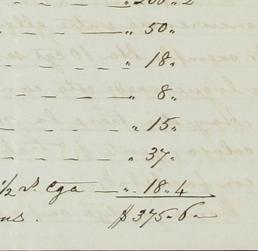 „ 200„2
„ 50„
„ 18„
„ 8„
„ 15„
„ 37„
1/2 Cga — „ 18.4
$ 375.6